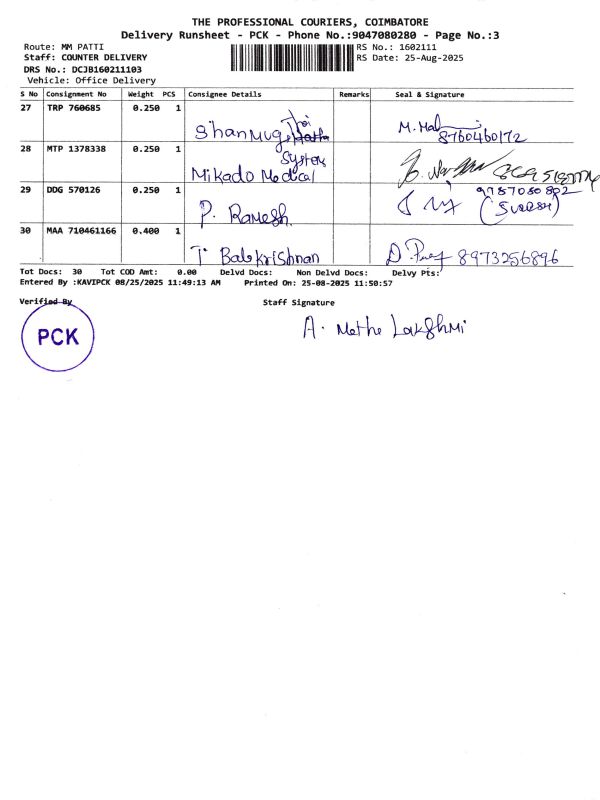 THE PROFESSIONAL COURIERS, COIMBATORE
Delivery Runsheet - PCK - Phone No.:9047080280 - Page No.:3
Route: MM PATTI RS No.: 1602111
Staff: COUNTER DELIVERY RS Date: 25-Aug-2025
DRS No.: DCJB160211103
Vehicle: Office Delivery
S No Consignment No Weight PCS Consignee Details Remarks Seal & Signature
27 TRP 760685 0.250 1
M. Mal
8760460172
28 MTP 1378338 0.250 1
System
Mikado Medical
29 DDG 570126 0.250 1 9787080802
P. Ramesh (SURESH)
30 MAA 710461166 0.400 1
T. Balakrishnan 8973256896
Tot Docs: 30 Tot COD Amt: 0.00 Delvd Docs: Non Delvd Docs: Delvy Pts:
Entered By :KAVIPCK 08/25/2025 11:49:13 AM Printed On: 25-08-2025 11:50:57
Verified By Staff Signature
PCK
A. Methe Lakshmi